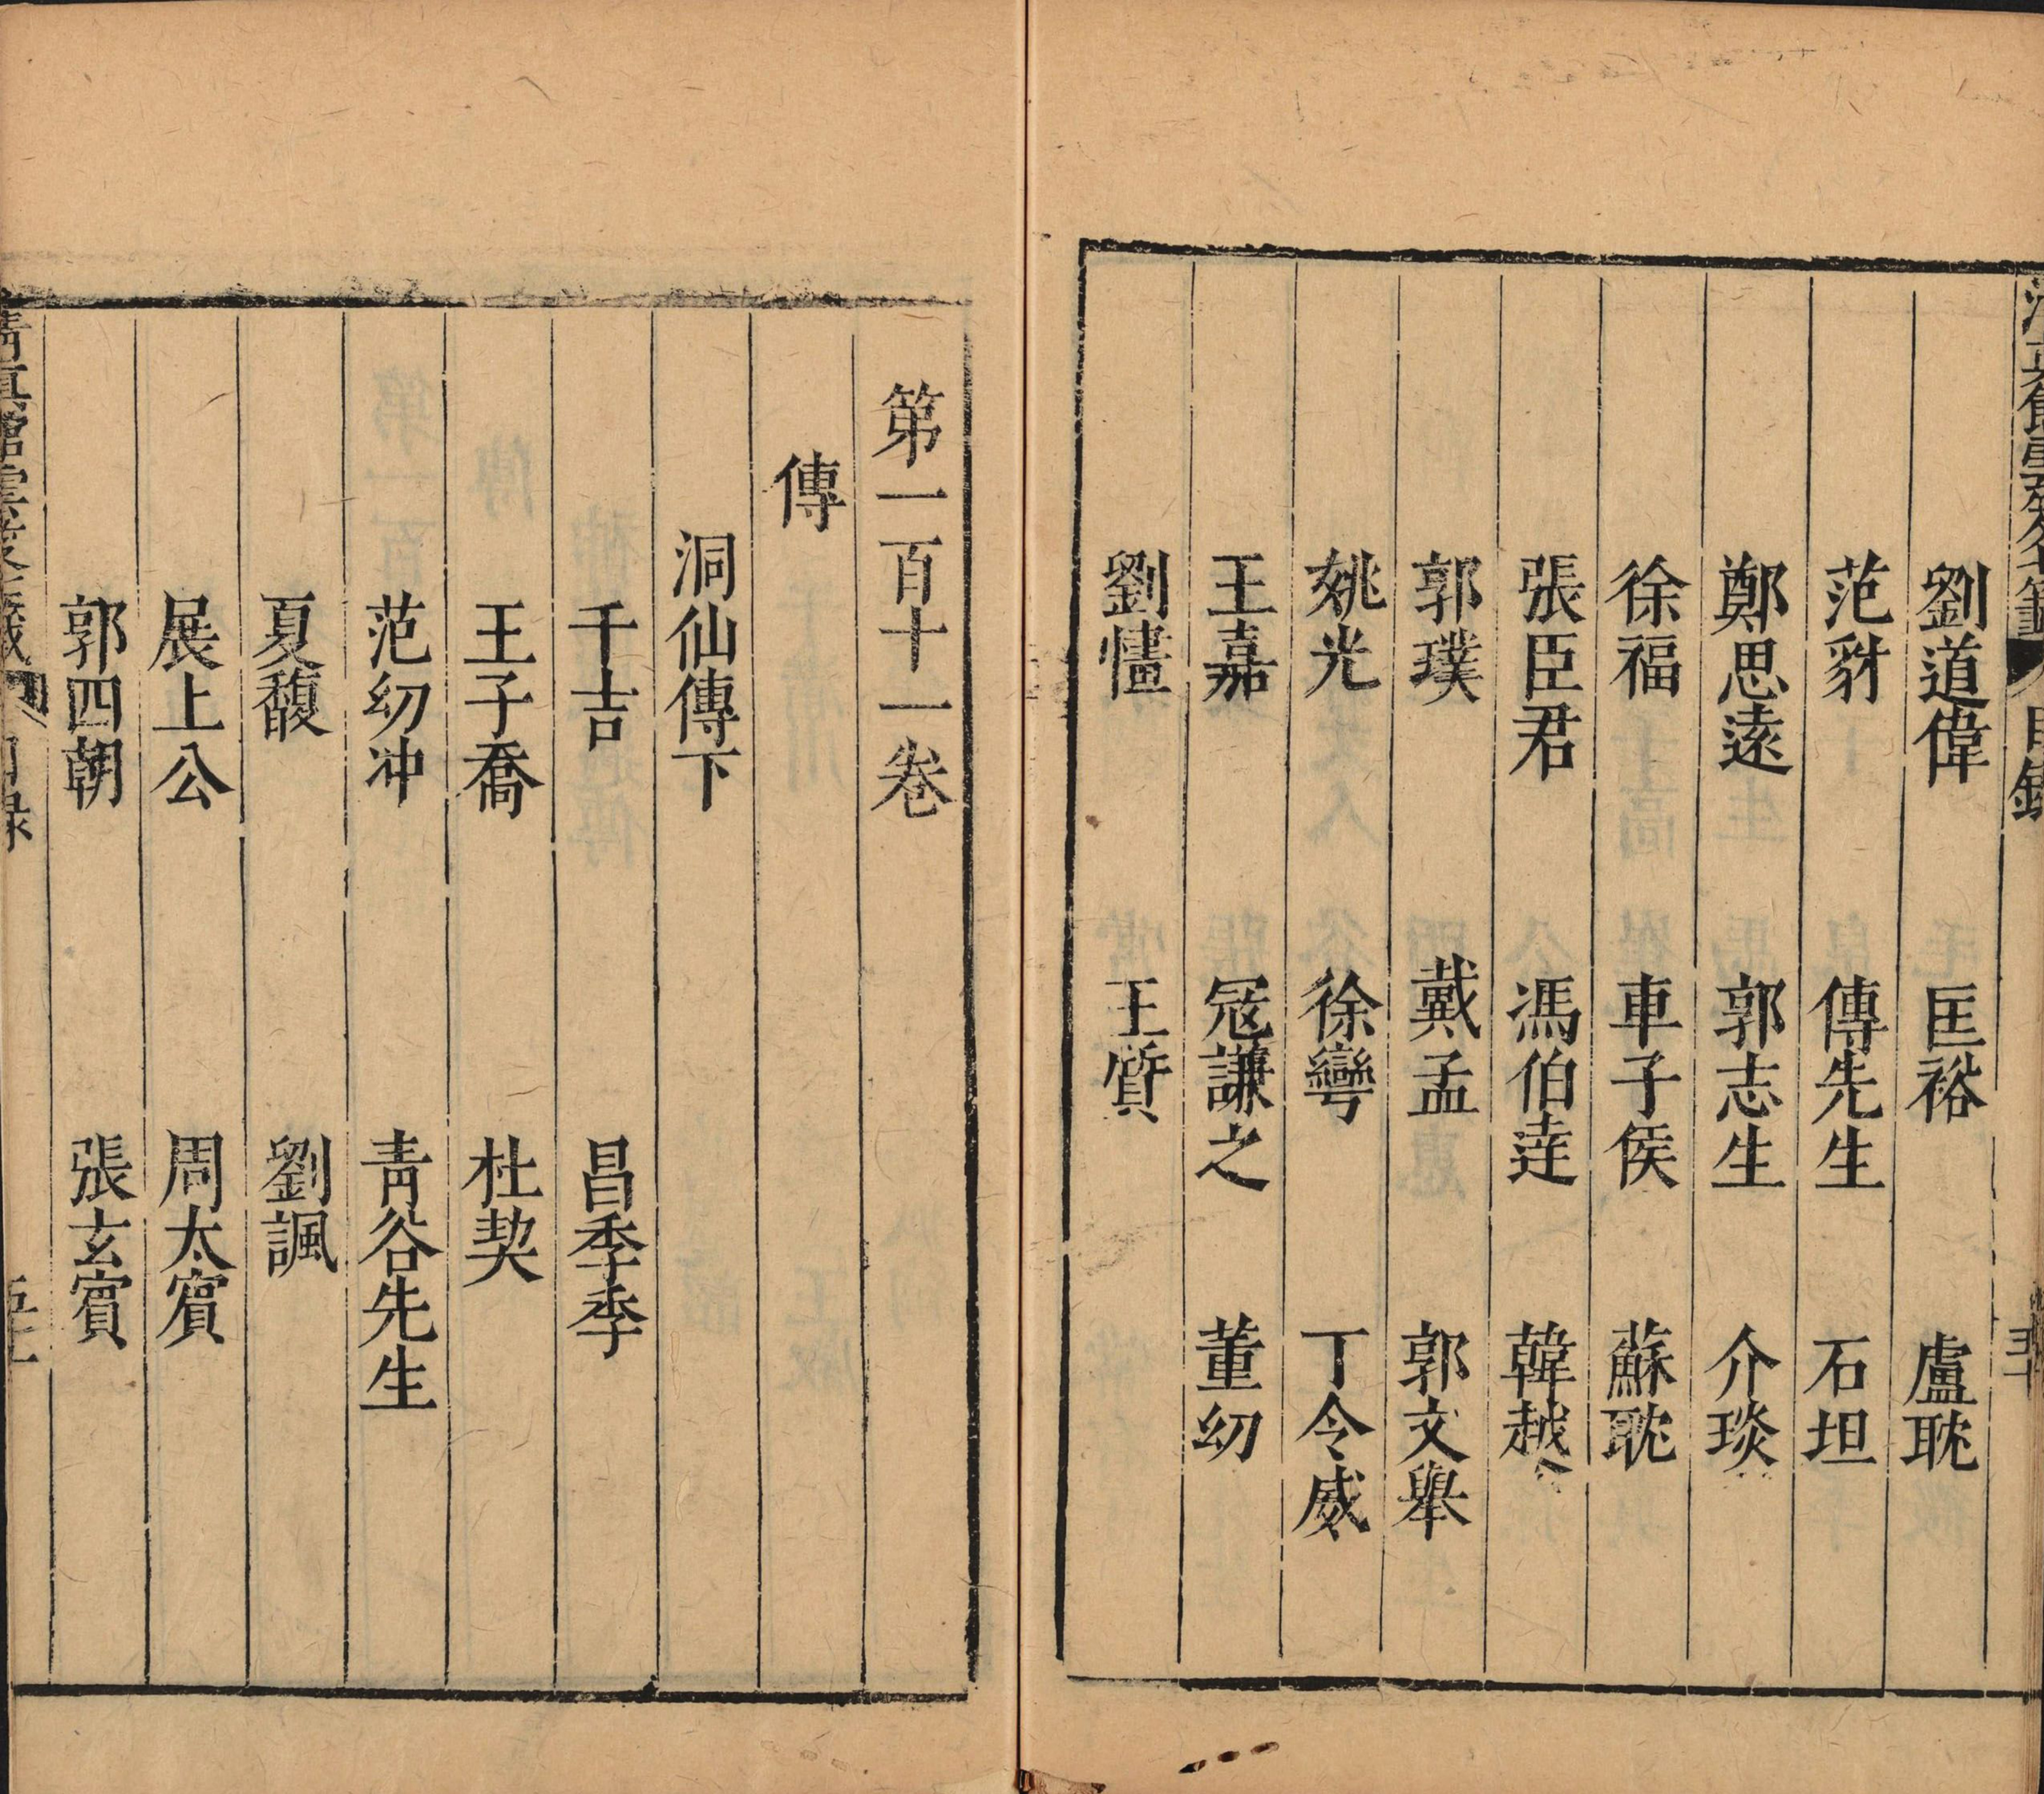 劉道偉 匡裕 盧耽
范豺 傳先生 石坦
鄭思遠 郭志生 介琰
徐福 車子侯 蘇耽
張臣君 馮伯達 韓越
郭璞 戴孟 郭文舉
姚光 徐彎 丁令威
王嘉 冦謙之 董幼
劉㦎 王質
第一百十一卷
傳
洞仙傳下
千吉 昌季季
王子喬 杜契
范幼冲 青谷先生
夏馥 劉諷
展上公 周太賓
郭四朝 張玄賓